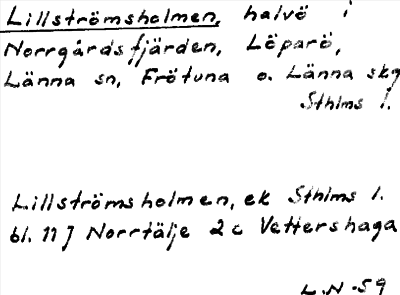 Lillströmsholmen, halvö i
Norrgårdsfjärden, Löparö,
Länna sn, Frötuna o. Länna skg
Sthlms l.
Lillströmsholmen, ek Sthlms l.
bl. 117 Norrtälje 2c Vettershaga
L.N.-59